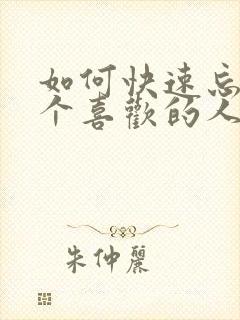 如何快速忘
个喜歡的人
朱仲麗